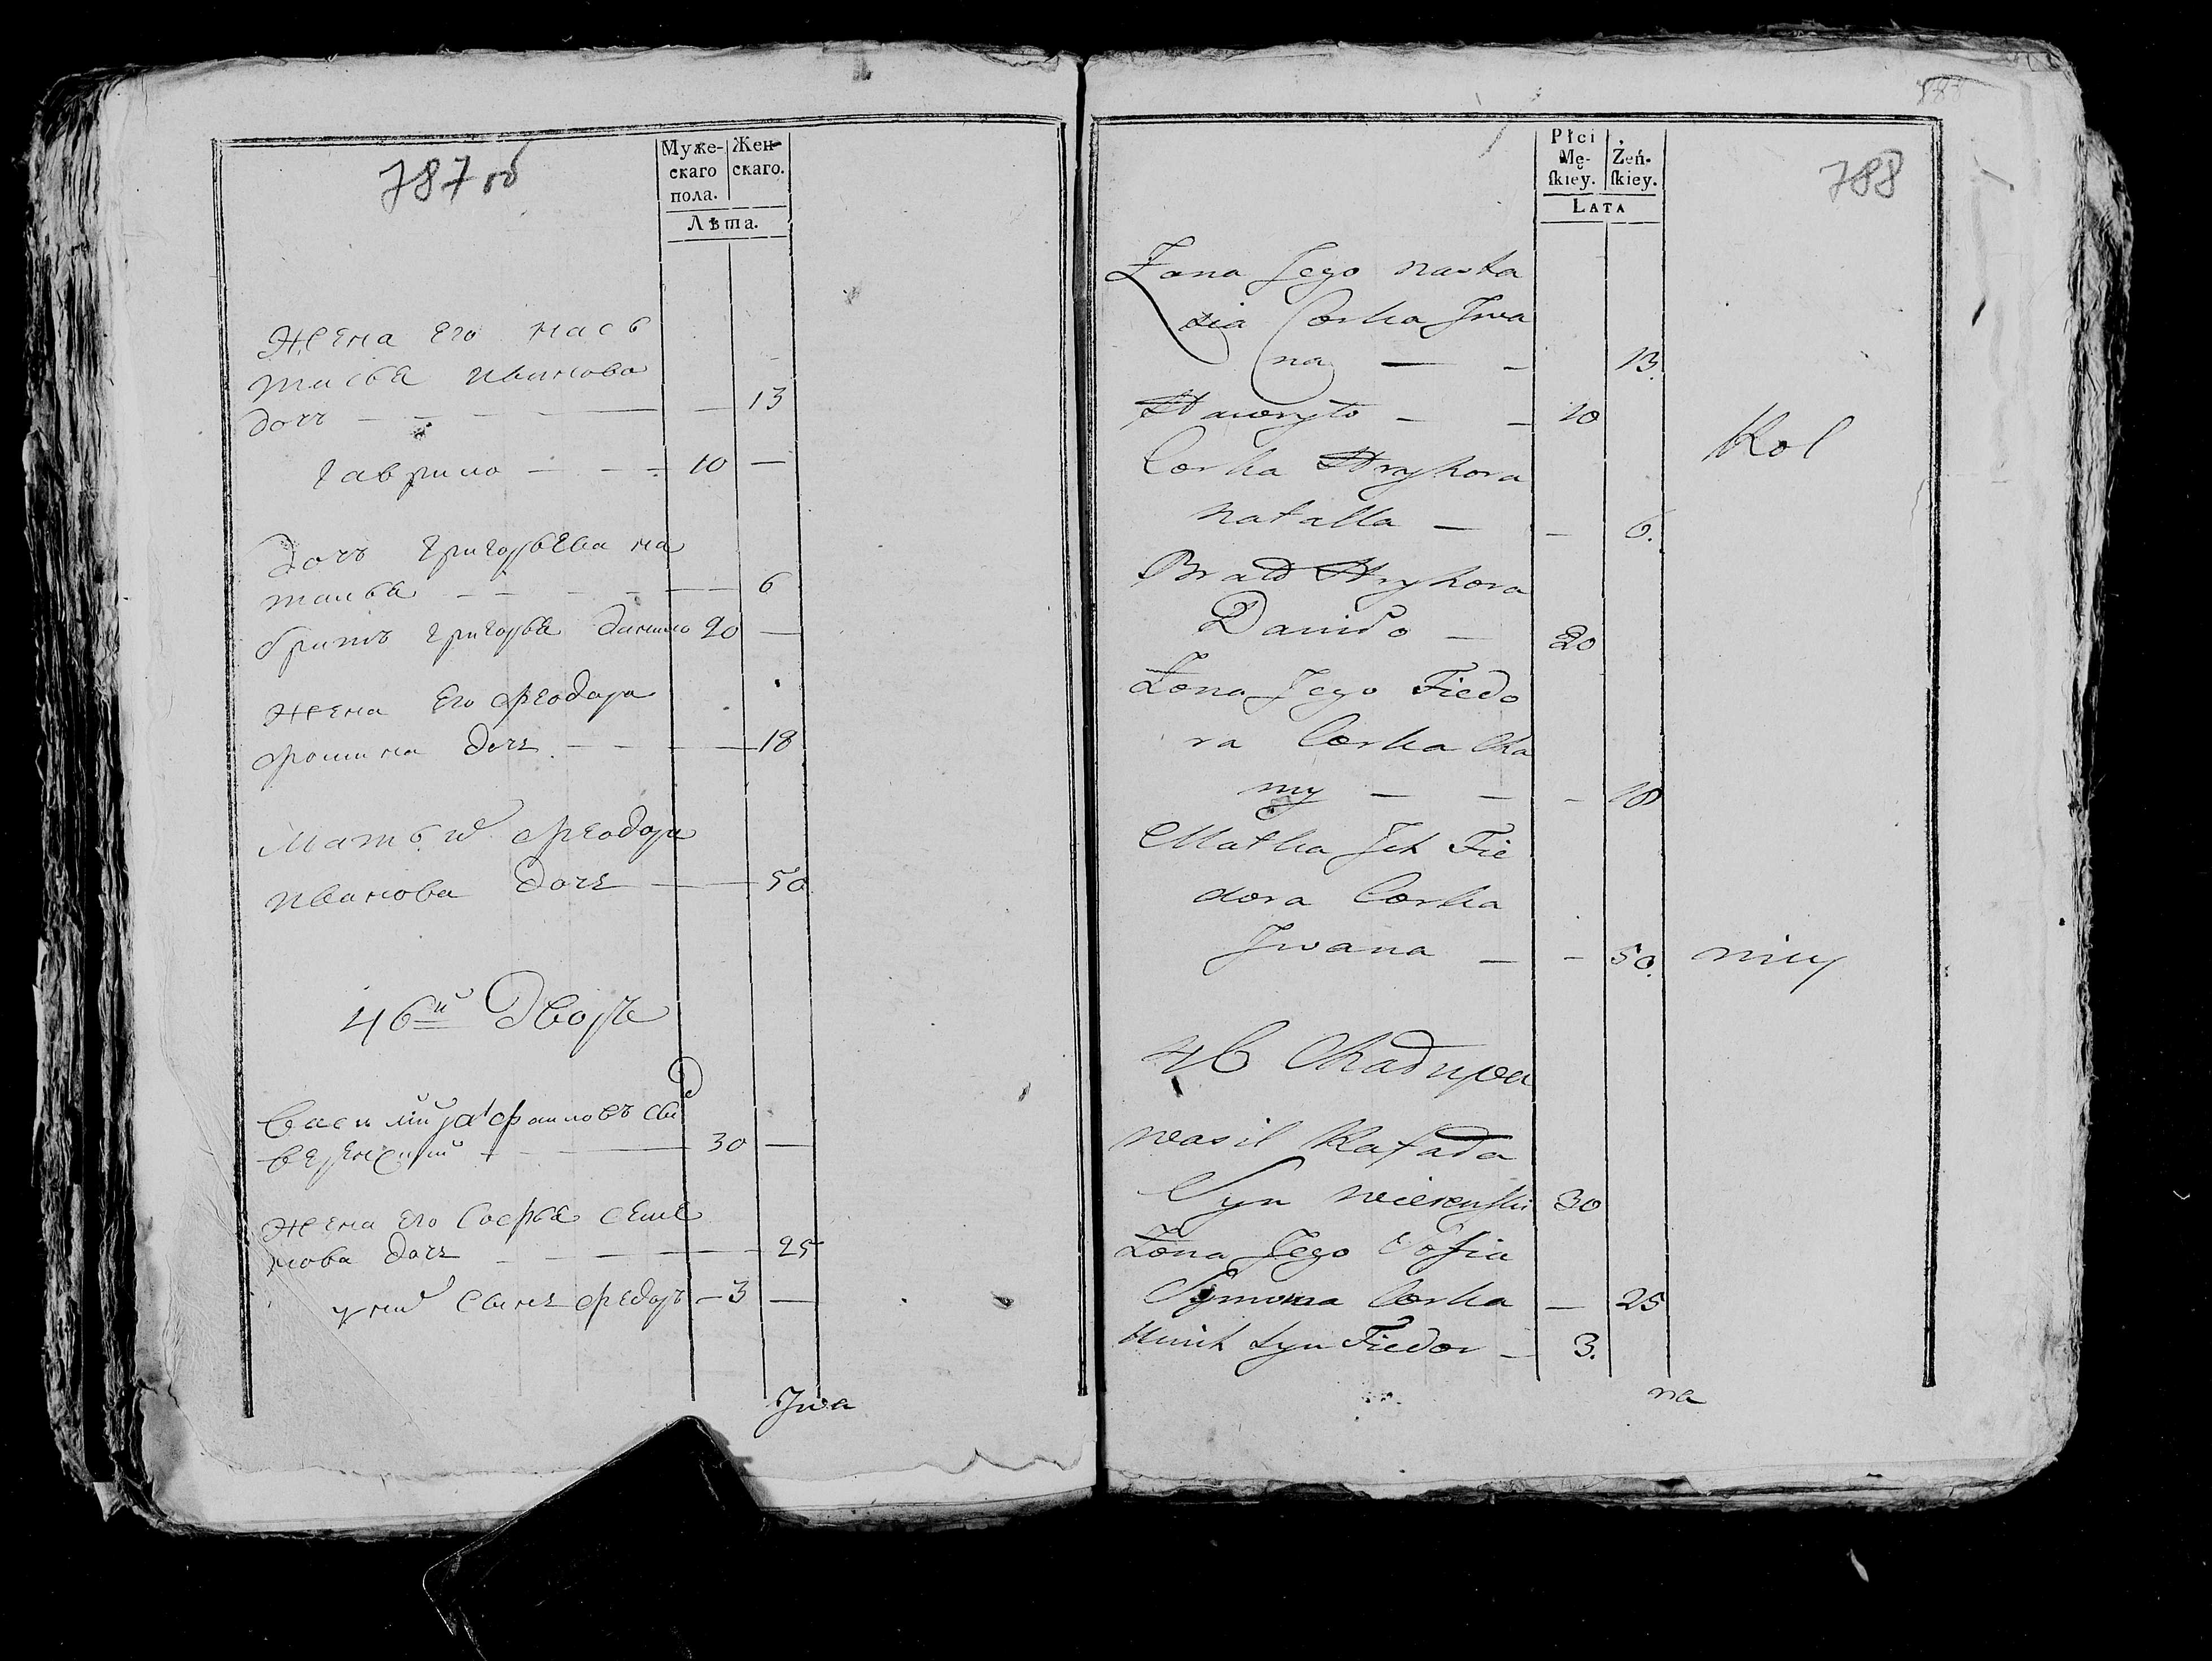 787 об
Муже-
скаго
пола.
Жен-
скаго.
Лѣта.
Жена Его насъ
тасья Иванова
дочь — — — — — 13
Гаврило — — — 10 —
Дочь Григорьева на
талья — — — — — 6
братъ Григорья Данило 20 —
Жена Его Феодора
Фомина дочь — — — — 18
Мать их Феодора
Иванова дочь — — 50
46й Дворъ
30 —
Жена Его Софья Семе
нова дочь — — — — 25
у них Сынъ Федоръ — 3 —
Jwa
788
Płci
Mę-
ſkiey.
Żeń-
ſkiey.
Lata
788
Żona Jego Nasta
zia Corka Jwa
na — — 13.
Hawryło — — 10
Kol
Corka Hryhora
Natalla — — 6.
Brat Hryhora
Daniło — 20
Żona Jego Fiedo
ra Corka Cho
my — — — 18
Matka Ich Fie
dora Corka
Jwana — — 50.
niey
46 Chadupa
Wasil Rafała
Syn 30
Żona Jego Sofia
Symona Corka — 25
Unich Syn Fiedor — 3.
na